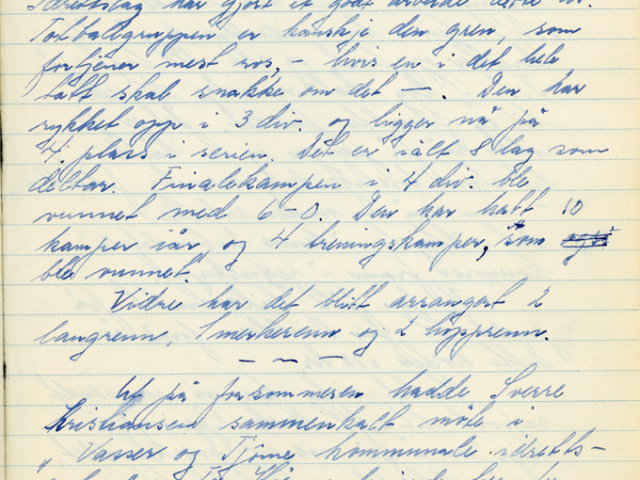 Idrettslag har gjort et godt arbeide dette år.
Fotballgruppen er kanskje den gren, som
fortjener mest ros, - hvis en i det hele
tatt skal snakke om det —. Den har
rykket opp i 3 div. og ligger nå på
4. plass i serien. Det er ialt 8 lag som
deltar. Finalekampen i 4 div. ble
vunnet med 6-0. Den har hatt 10
kamper iår, og 4 treningskamper, som
ble vunnet.
Vidre har det blitt arrangert 2
langrenn, 1 merkerenn og 2 hopprenn.
— ~ —
Ut på forsommeren hadde Sverre
Kristiansen sammenkalt møte i
„Vasser og Tjøme kommunale idretts-